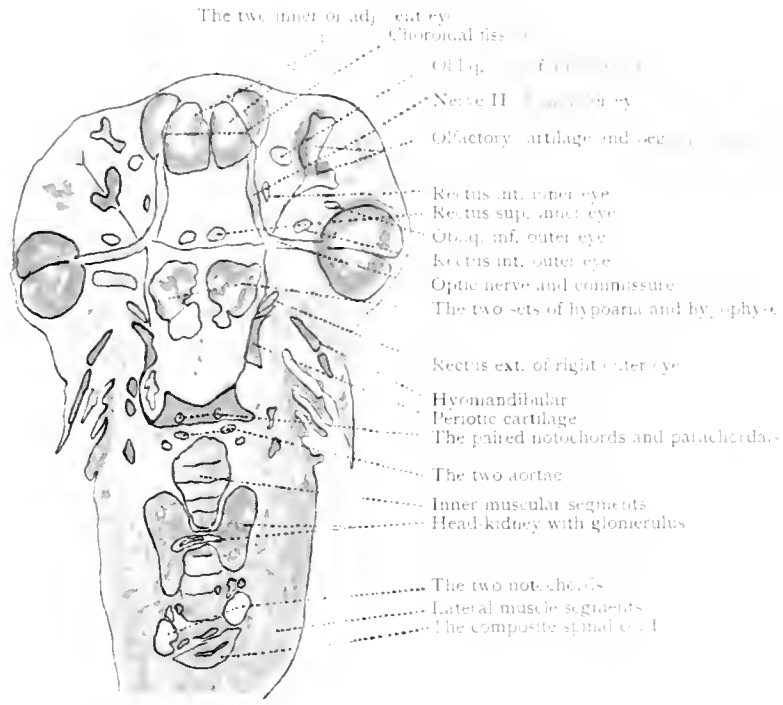 The two inner or
Choroidal
Nerve II
Olfactory cartilage and
Rectus int. inner eye
Rectus sup. inner eye
Obliq. inf. outer eye
Rectus int. outer eye
Optic nerve and commissure
The two sets of hypoaria and
Rectus ext. of right outer eye
Hyomandibular
Periotic cartilage
The paired notochords and parachordals
The two aortae
Inner muscular segments
Head-kidney with glomerulus
The two notochords
Lateral muscle segments
The composite spinal cord